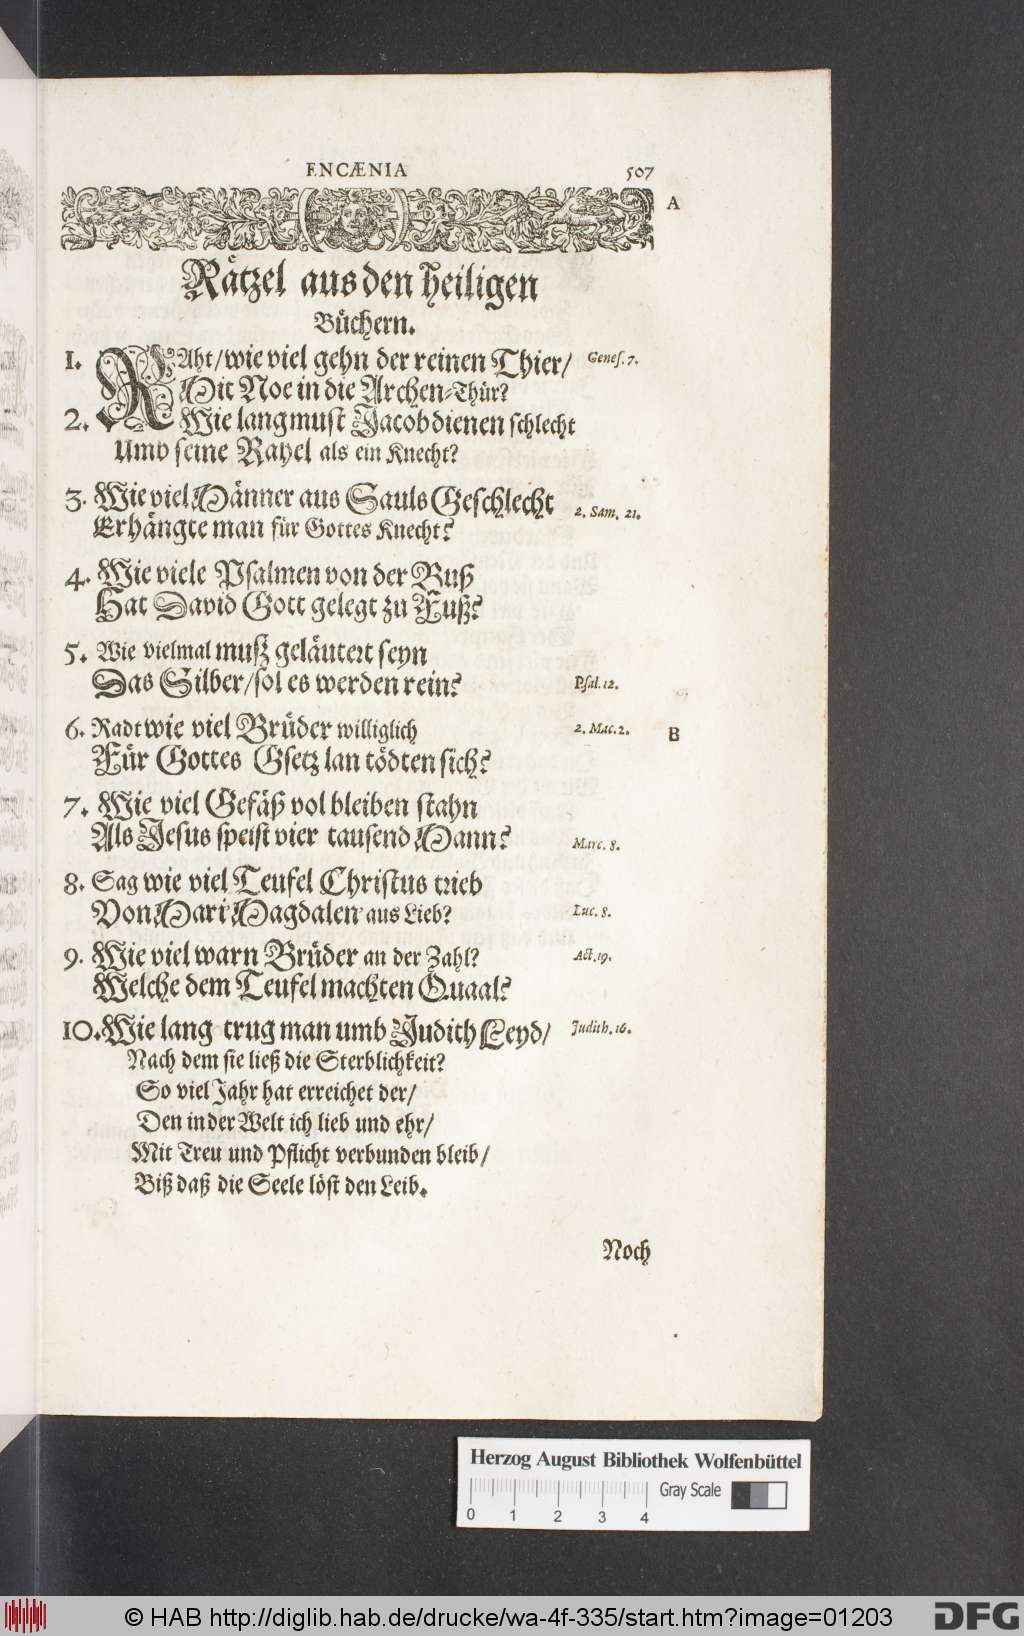 ENCÆNIA 507
A
Rätzel aus den heiligen
Büchern.
1. RAht/wie viel gehn der reinen Thier/ Genes. 7.
Mit Noe in die Archen-Thür?
2. Wie lang must Jacob dienen schlecht
Umb seine Rahel als ein Knecht?
3. Wie viel Männer aus Sauls Geschlecht 2. Sam. 21.
Erhängte man für Gottes Knecht?
4. Wie viele Psalmen von der Buß
Hat David Gott gelegt zu Fuß?
5. Wie vielmal muß geläutert seyn
Das Silber/sol es werden rein? Psal. 12.
6. Radt wie viel Brüder williglich 2. Mac. 2. B
Für Gottes Gsetz lan tödten sich?
7. Wie viel Gefäß vol bleiben stahn
Als Jesus speist vier tausend Mann? Marc. 8.
8. Sag wie viel Teufel Christus trieb
Von Mari Magdalen aus Lieb? Luc. 8.
9. Wie viel warn Brüder an der Zahl? Act. 19.
Welche dem Teufel machten Quaal?
10. Wie lang trug man umb Judith Leyd/ Judith. 16.
Nach dem sie ließ die Sterblichkeit?
So viel Jahr hat erreichet der/
Den in der Welt ich lieb und ehr/
Mit Treu und Pflicht verbunden bleib/
Biß daß die Seele löst den Leib.
Noch
Herzog August Bibliothek Wolfenbüttel
Gray Scale
0 1 2 3 4
© HAB http://diglib.hab.de/drucke/wa-4f-335/start.htm?image=01203 DFG